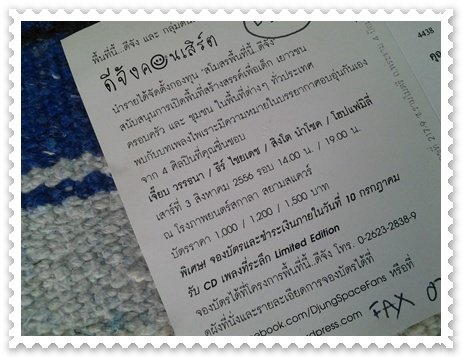 พื้นที่นี้...ดีจัง และ
ดีจังคอนเสิร์ต
นำรายได้จัดตั้งกองทุน "สโมสรพื้นที่นี้...ดีจัง
สนับสนุนการเปิดพื้นที่สร้างสรรค์เพื่อเด็ก เยาวชน
ครอบครัว และ ชุมชน ในพื้นที่ต่างๆ ทั่วประเทศ
พบกับบทเพลงไพเราะมีความหมายในบรรยากาศอบอุ่นกันเอง
จาก 4 ศิลปินที่คุณชื่นชอบ
เจี๊ยบ วรรธนา / ธีร์ ไชยเดช / สิงโต นำโชค / โฮปแฟมิลี่
เสาร์ที่ 3 สิงหาคม 2556 รอบ 14.00 น. / 19.00 น.
ณ โรงภาพยนตร์สกาลา สยามสแควร์
บัตรราคา 1,000 / 1,200 / 1,500 บาท
พิเศษ! จองบัตรและชำระเงินภายในวันที่ 10 กรกฎาคม
รับ CD เพลงที่ระลึก Limited Edition
จองบัตรได้ที่โครงการพื้นที่นี้...ดีจัง โทร. 0-2623-2838-9
ดูผังที่นั่งและรายละเอียดการจองบัตรได้ที่
cebook.com/DjungSpaceFans หรือที่
dpress.com FAX
4438